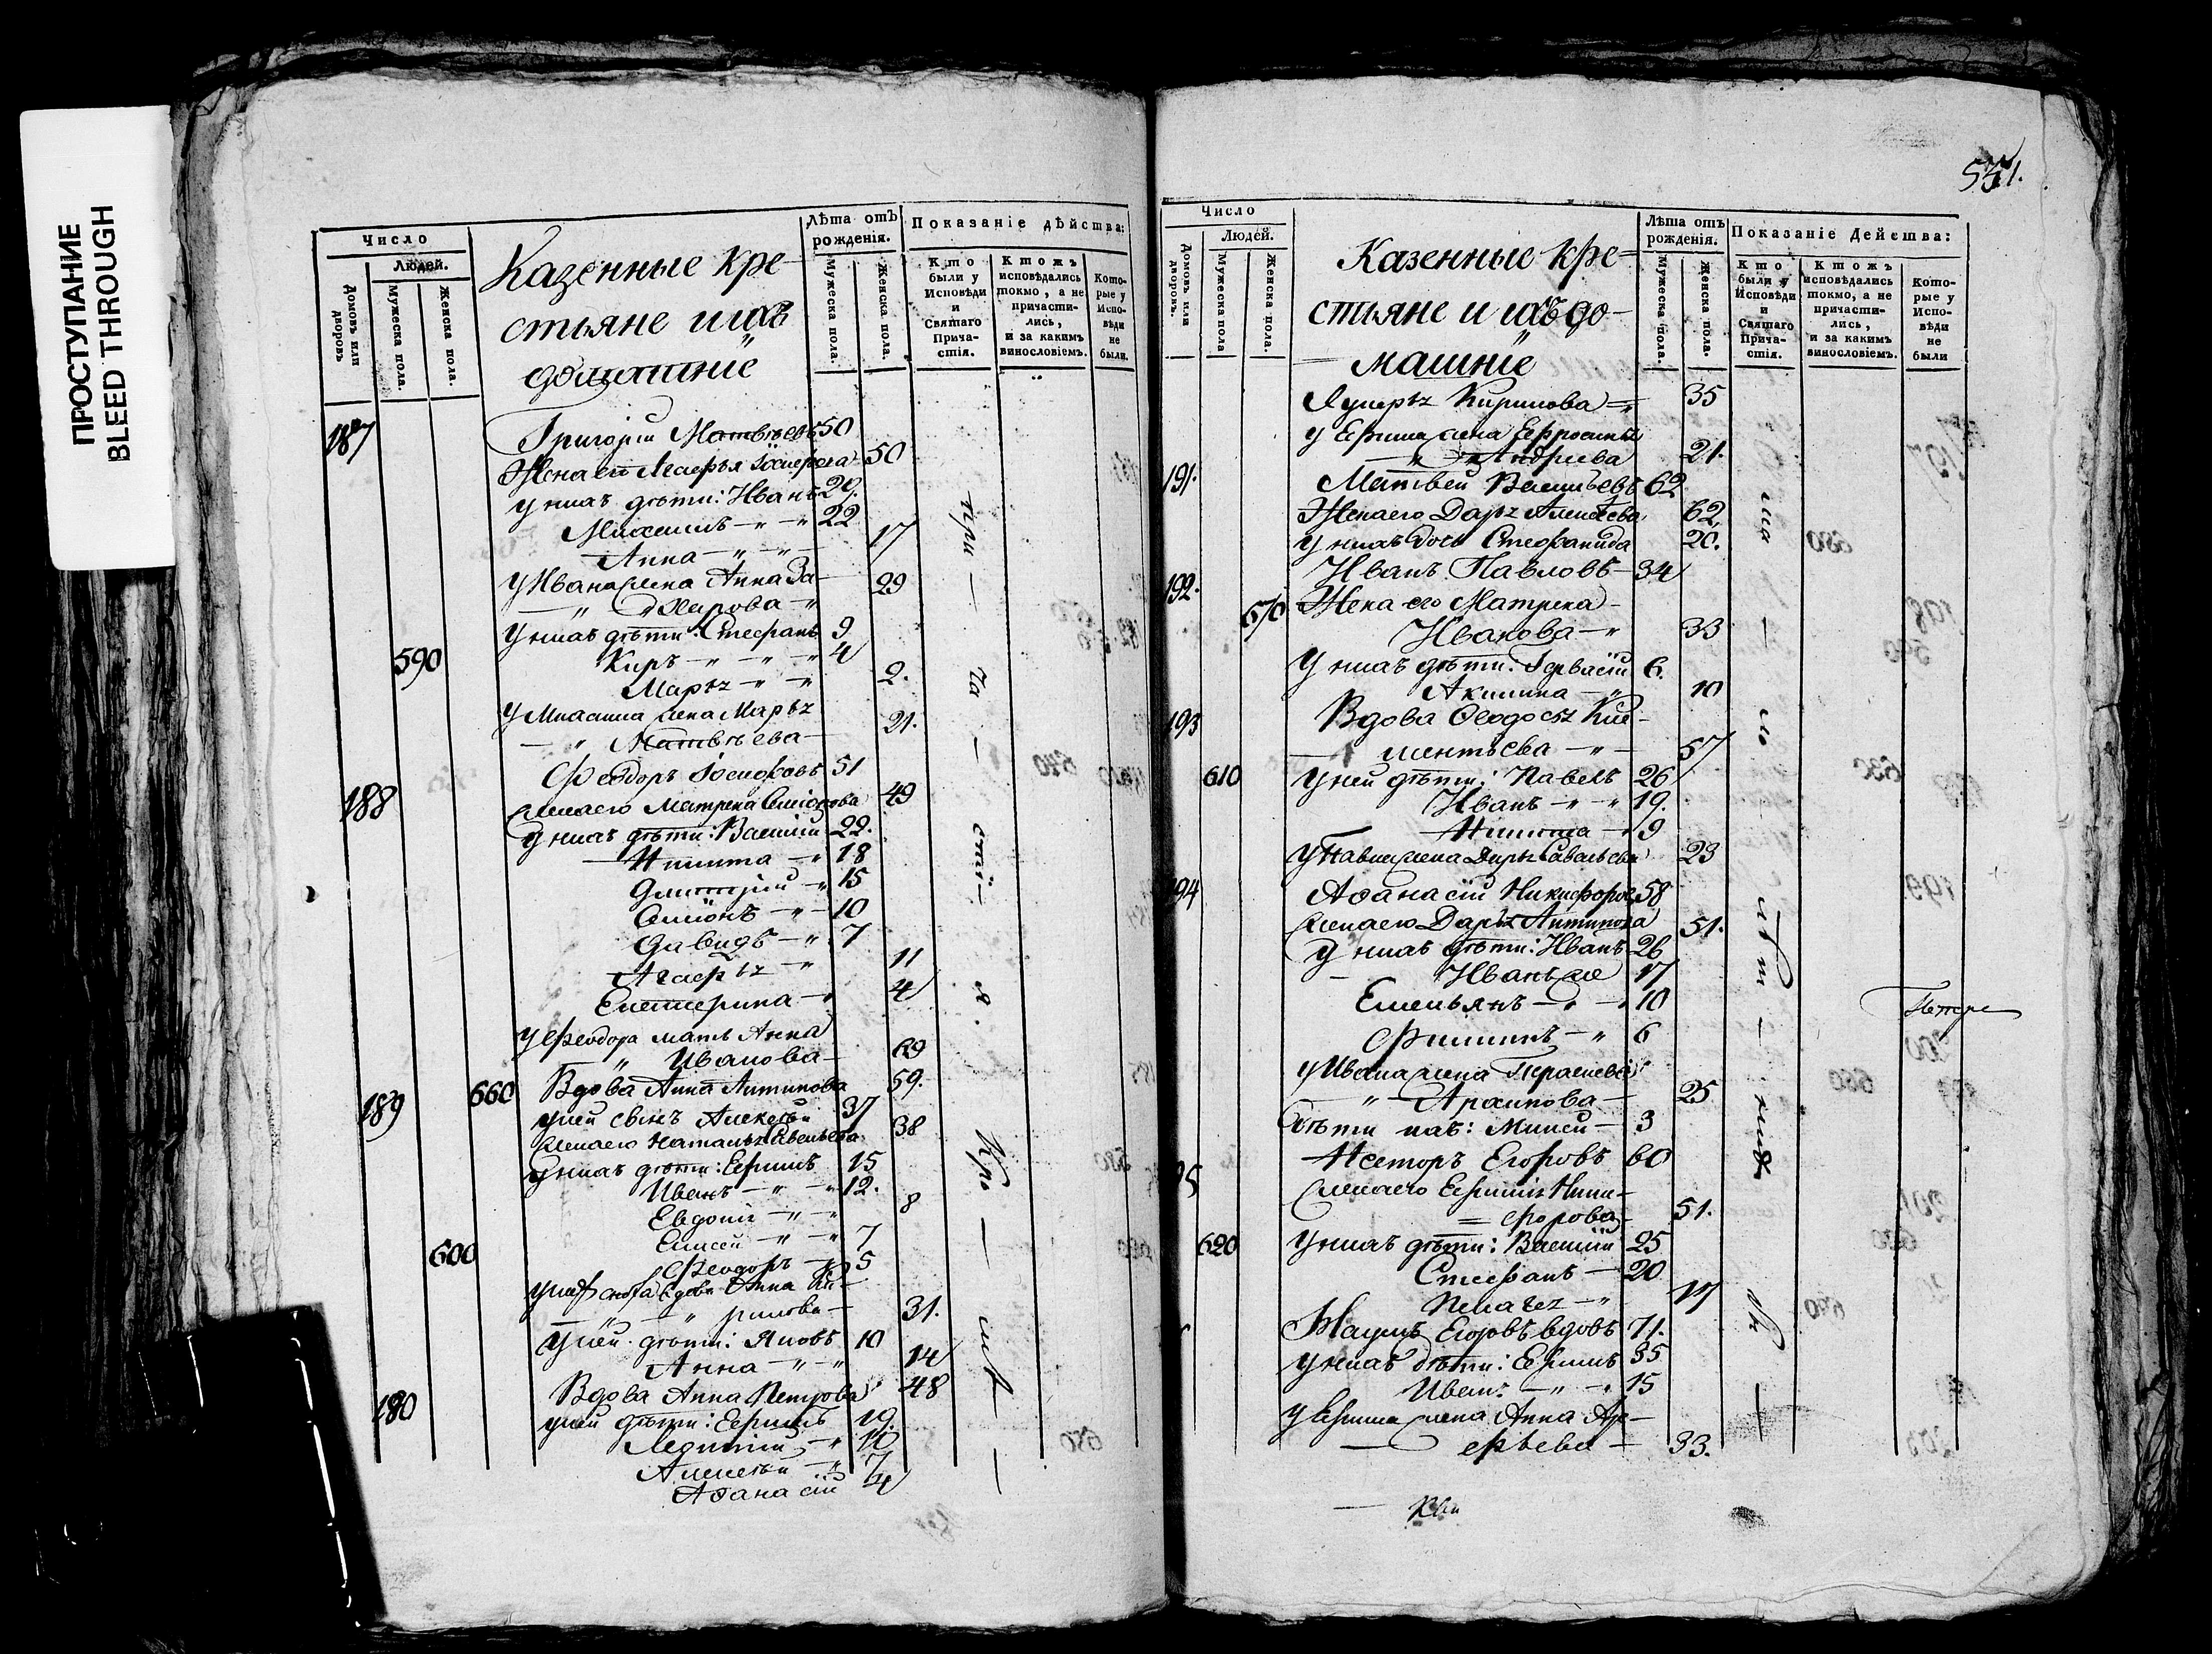 ПРОСТУПАНИЕ
BLEED THROUGH
Число
Людей.
Домовъ или дворовъ
Мужеска пола.
Женска пола.
Казенные кре-
стьяне и ихъ
домашніе
Лѣта отъ рожденія.
Мужеска пола.
Женска пола.
Показаніе дѣйства:
Кто были у Исповѣди и Святаго Прича-стія.
Ктожъ исповѣдались токмо, а не причасти-лись, и за какимъ винословіемъ.
Кото-рые у Испо-вѣди не были.
187 Григорій Матвѣевъ 50
Жена его Марѳа 50
у нихъ дѣти: Иванъ 29.
Михаилъ 22
Анна 17
У Ивана жена Анна За-
харова 29
У нихъ дѣти: Стефанъ 9
590 Киръ 4
Марѳа 2.
У Михаила жена Марѳа
Матвѣева 21.
188 Феодоръ Іосифовъ 51
жена его Матрена Симіонова 49
У нихъ дѣти: Василій 22.
Никита 18
Дмитрій 15
Симіонъ 10
Давидъ 7
Агафья 11
Екатерина 4
У Феодора мать Анна
Иванова 69
189 660 Вдова Анна Антипова 59.
у ней сынъ Алексѣй 37
жена его Наталья Савельева 38
У нихъ дѣти: Ефимъ 15
Иванъ 12.
Евдокія 8
Елисей 7
600 Феодоръ 5
у ней сноха вдова Анна Ки-
рилова 31.
У ней дѣти: Яковъ 10
Анна 14
180 Вдова Анна Петрова 48
у ней дѣти: Ефимъ 19.
Леонтій 10
Алексѣй 7
Аѳанасій 4
при — ча — стія. Кро — мѣ —
551.
Число
Людей.
Домовъ или дворовъ.
Мужеска пола
Женска пола.
Казенные кре-
стьяне и ихъ до-
машніе
Лѣта отъ рожденія.
Мужеска пола.
Женска пола.
Показаніе Действа:
Кто были у Исповѣди и Святаго Прича-стія.
Ктожъ исповѣдались токмо, а не причасти-лись, и за какимъ винословіемъ.
Кото-рые у Испо-вѣди не были
Кирилова 35
у Ефима жена Ефросинья
Андреева 21.
191. Матвей Васильевъ 62
Жена его Дарья Алексѣева 62.
У нихъ дочь Стефанида 20.
192. Иванъ Павловъ 34
670 Жена его Матрена
Иванова 33
У нихъ дѣти: Гервасій 6.
Акилина 10
193 Вдова Ѳеодосья Кли-
ментьева 57
610 У ней дѣти: Павелъ 26
Иванъ 19.
Никита 9
У Павла жена Дарья Савельева 23
194 Аѳанасій Никифоровъ 58
жена его Дарья Антипова 51.
У нихъ дѣти: Иванъ 26
Иванъ же 17
Емельянъ 10
Филипъ 6
У Ивана жена Параскева
Архипова 25
Дѣти ихъ: 3
195 Несторъ Егоровъ 60
жена его Ефимія Ники-
форова 51.
620 У нихъ дѣти: Василій 25
Стефанъ 20
Пелагея 17
Егоровъ вдовъ 71.
У нихъ дѣти: Ефимъ 35
Иванъ 15
У Ефима жена Анна Аре-
фьева 33.